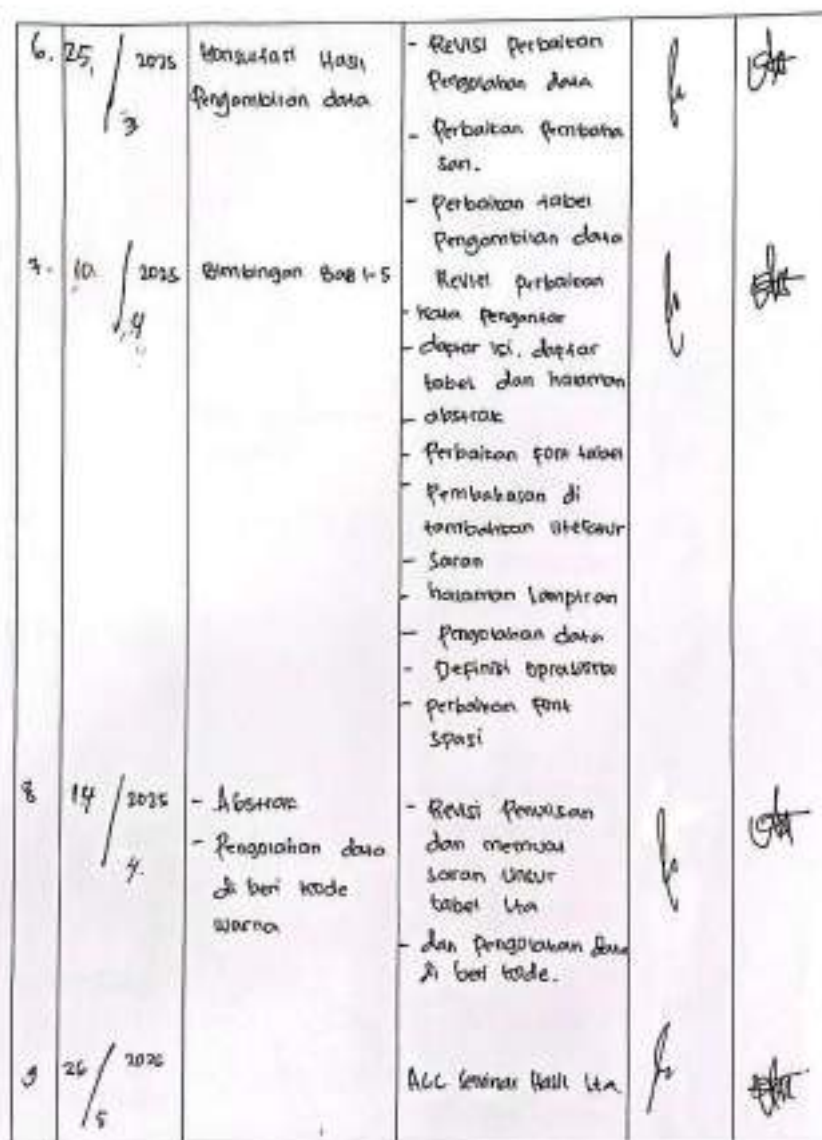 6. 25 / 3 2025
Konsultasi Hasil
Pengambilan data
- Revisi Perbaikan
Pengolahan data
- Perbaikan Pembaha
san.
- Perbaikan tabel
Pengambilan data
7. 10 / 4 2025
Bimbingan BAB 1-5
Revisi perbaikan
- Kata Pengantar
- daftar isi, daftar
tabel dan halaman
- abstrak
- Perbaikan font tabel
- Pembahasan di
tambahkan literatur
- Saran
- halaman Lampiran
- Pengolahan data
- Definisi
- perbaikan Font
spasi
8 14 / 4. 2025
- Abstrak
- Pengolahan data
di beri kode
warna
- Revisi Penulisan
dan memuat
saran untuk
tabel Lta
- dan Pengolahan data
di beri kode.
9 26 / 5
ACC Seminar Hasil Lta